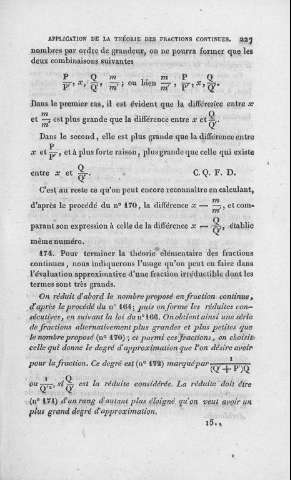 APPLICATION DE LA THÉORIE DES FRACTIONS CONTINUES. 227
nombres par ordre de grandeur, on ne pourra former que les
deux combinaisons suivantes
P/P', x, Q/Q', m/m'; ou bien m/m', P/P', x, Q/Q'.
Dans le premier cas, il est évident que la différence entre x
et m/m' est plus grande que la différence entre x et Q/Q'.
Dans le second, elle est plus grande que la différence entre
x et P/P', et à plus forte raison, plus grande que celle qui existe
entre x et Q/Q'. C. Q. F. D.
C'est au reste ce qu'on peut encore reconnaître en calculant,
d'après le procédé du n° 170, la différence x — m/m', et com-
parant son expression à celle de la différence x — Q/Q', établie
même numéro.
174. Pour terminer la théorie élémentaire des fractions
continues, nous indiquerons l'usage qu'on peut en faire dans
l'évaluation approximative d'une fraction irréductible dont les
termes sont très grands.
On réduit d'abord le nombre proposé en fraction continue,
d'après le procédé du n° 164; puis on forme les réduites con-
sécutives, en suivant la loi du n° 166. On obtient ainsi une série
de fractions alternativement plus grandes et plus petites que
le nombre proposé (n° 170); et parmi ces fractions, on choisit
celle qui donne le degré d'approximation que l'on désire avoir
pour la fraction. Ce degré est (n° 172) marqué par 1/(Q' + P')Q'
ou 1/Q'², si Q/Q' est la réduite considérée. La réduite doit être
(n° 171) d'un rang d'autant plus éloigné qu'on veut avoir un
plus grand degré d'approximation.
15..